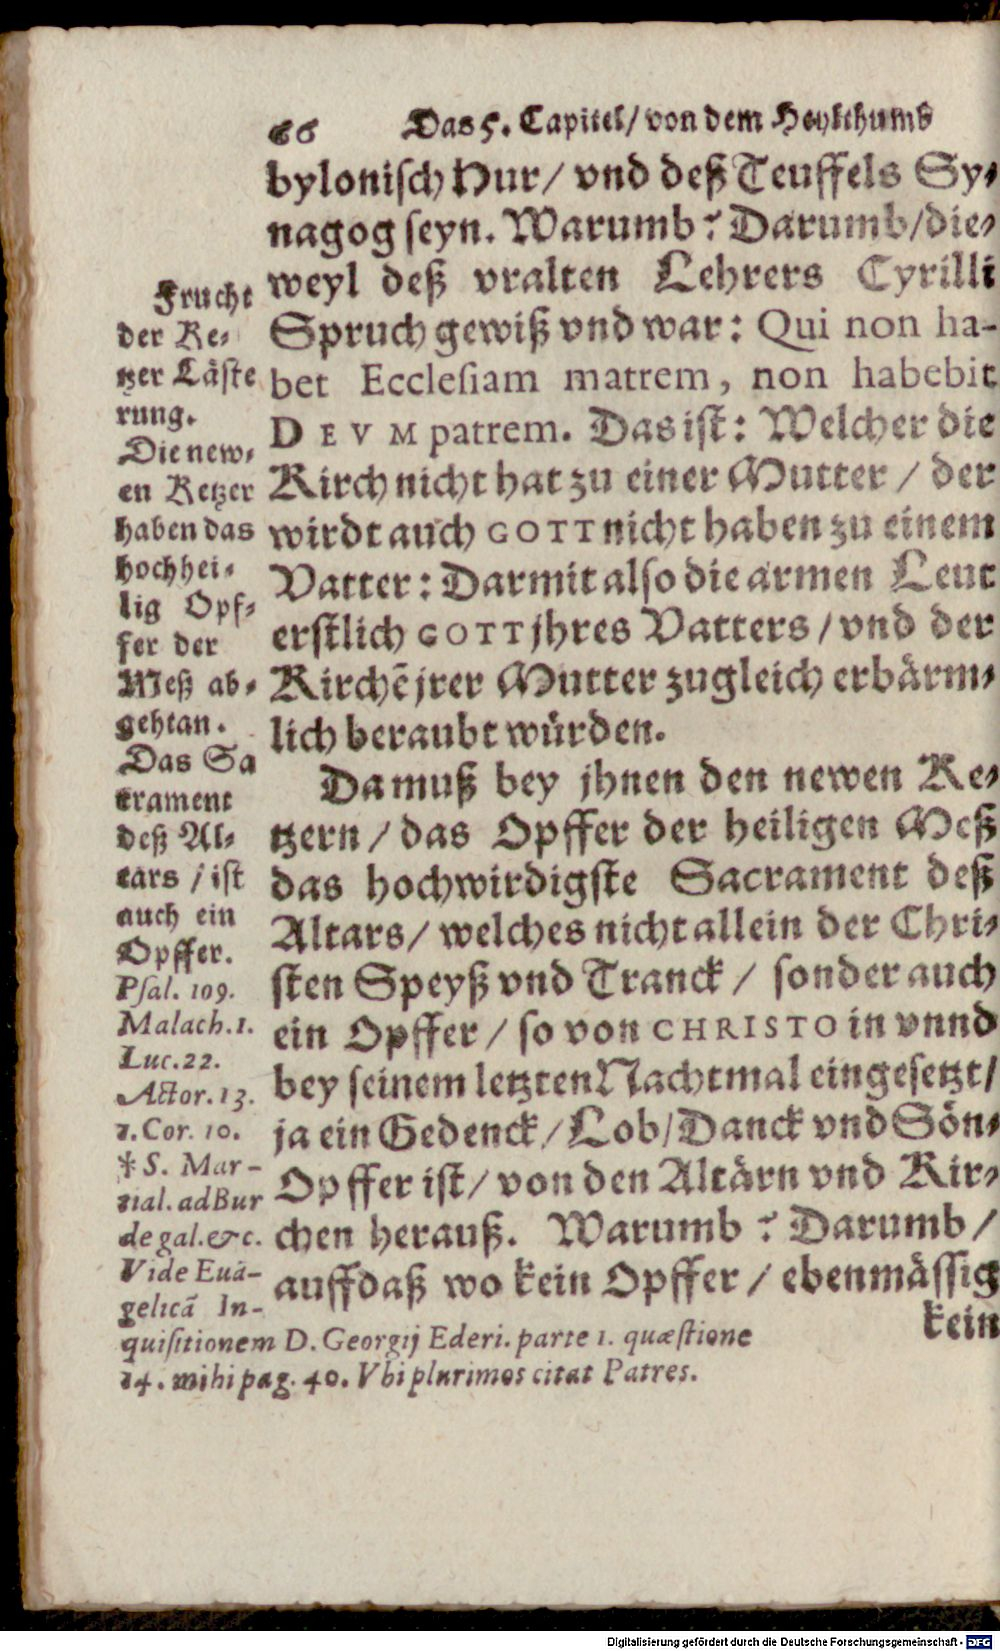 66 Das 5. Capitel/ von dem Heylthumb
bylonisch Hur/ vnd deß Teuffels Sy-
nagog seyn. Warumb? Darumb/die-
weyl deß vralten Lehrers Cyrilli
Spruch gewiß vnd war: Qui non ha-
bet Ecclesiam matrem, non habebit
DEVM patrem. Das ist: Welcher die
Kirch nicht hat zu einer Mutter / der
wirdt auch GOTT nicht haben zu einem
Vatter: Darmit also die armen Leut
erstlich GOTT jhres Vatters / vnd der
Kirchẽ jrer Mutter zugleich erbärm-
lich beraubt würden.
Da muß bey jhnen den newen Ke-
tzern / das Opffer der heiligen Meß
das hochwirdigste Sacrament deß
Altars/ welches nicht allein der Chri-
sten Speyß vnd Tranck / sonder auch
ein Opffer / so von CHRISTO in vnnd
bey seinem letzten Nachtmal eingesetzt/
ja ein Gedenck/ Lob/ Danck vnd Sön-
Opffer ist/ von den Altärn vnd Kir-
chen herauß. Warumb ? Darumb /
auffdaß wo kein Opffer / ebenmässig
kein
Frucht
der Ke-
tzer Läste
rung.
Die new-
en Ketzer
haben das
hochhei-
lig Opf-
fer der
Meß ab-
gehtan.
Das Sa
crament
deß Al-
tars / ist
auch ein
Opffer.
Psal. 109.
Malach. 1.
Luc. 22.
Actor. 13.
1. Cor. 10.
* S. Mar-
tial. ad Bur
de gal. &c.
Vide Euã-
gelicã In-
quisitionem D. Georgij Ederi. parte 1. quæstione
14. mihi pag. 40. Vbi plurimos citat Patres.
Digitalisierung gefördert durch die Deutsche Forschungsgemeinschaft - DFG